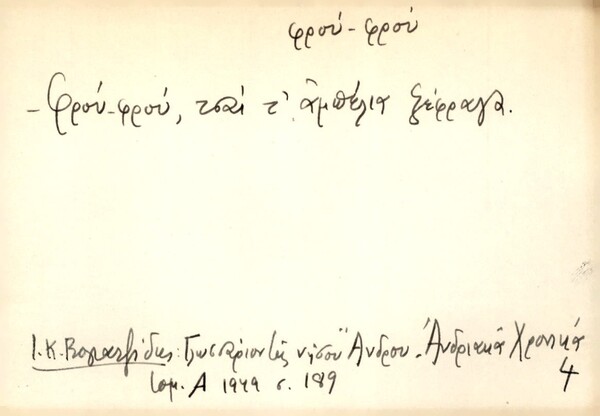 φρού-φρού
- Φρού-φρού, τσαί τ' ἀμπέλια ξέφραγα.
Ι.Κ. Βογιατζίδης: Γλωσσάριον τῆς νήσου Ἄνδρου. Ἀνδριακά Χρονικά
τομ. Α 1949 σ. 189
4